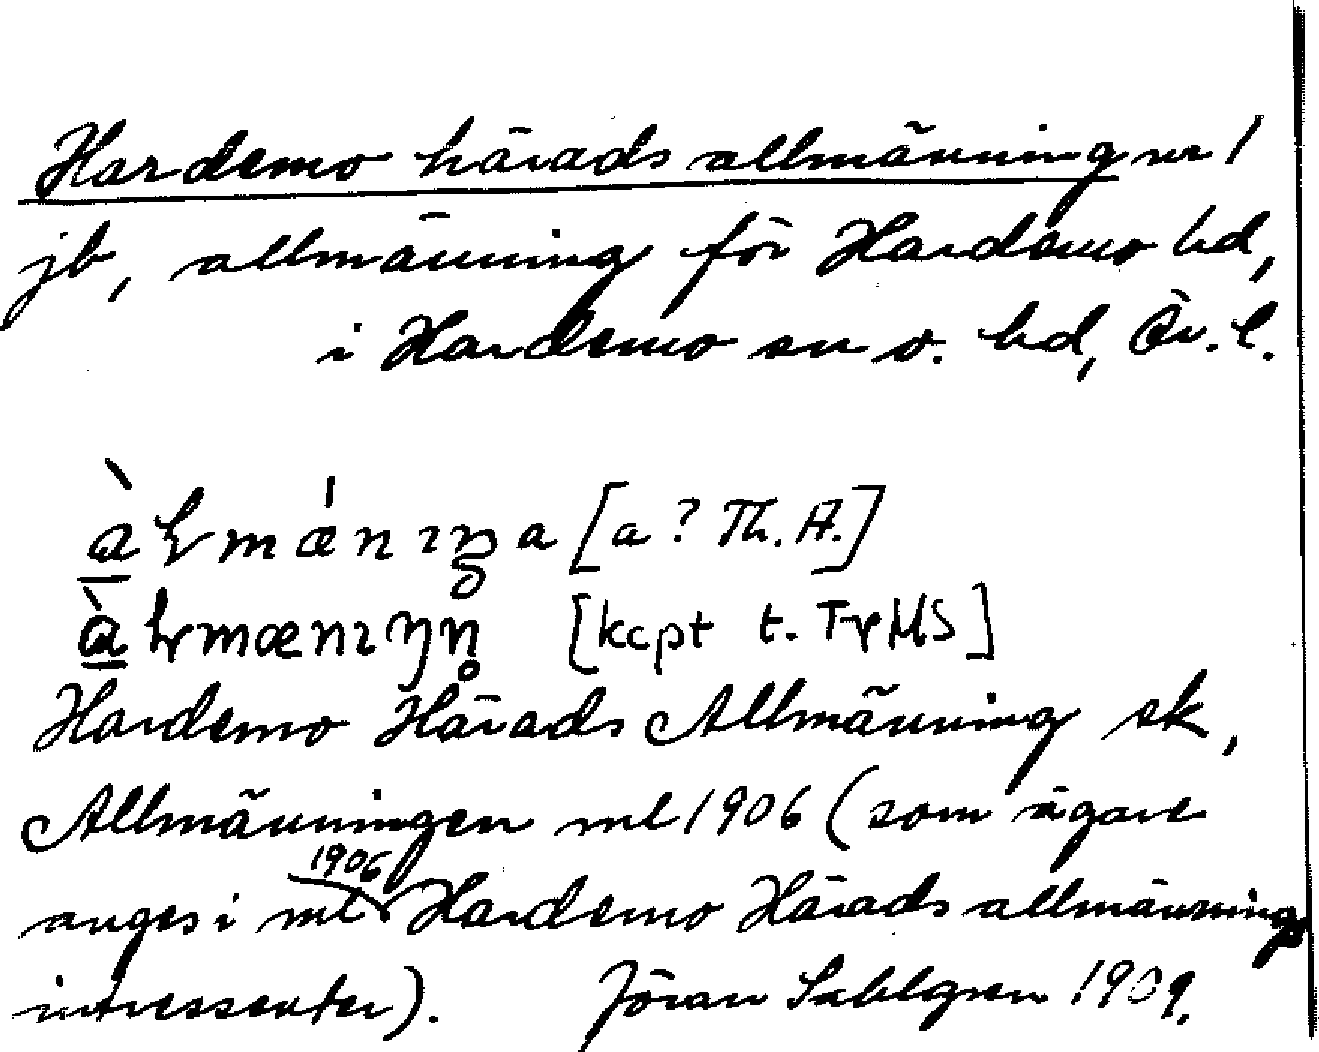 Hardemo härads allmänning nr 1
jb, allmänning för Hardemo hd,
i Hardemo sn o. hd, Ör. l.
[a? Th. A.]
[kcpt t. FrMS]
Hardemo Härads Allmänning sk,
Allmänningen ml 1906 (som ägare
anges i ml 1906 Hardemo Härads allmännings
intressenter). Jöran Sahlgren 1909.